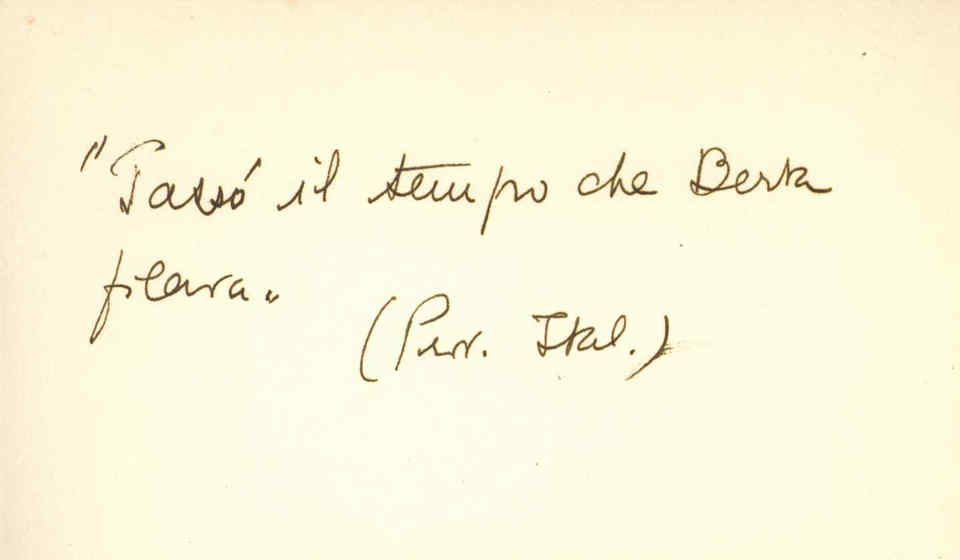 "Passó il tempo che Berta
filava"
(Prov. Ital.)